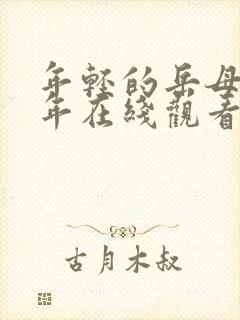 年轻的岳母
年在线觀看
古月木叔